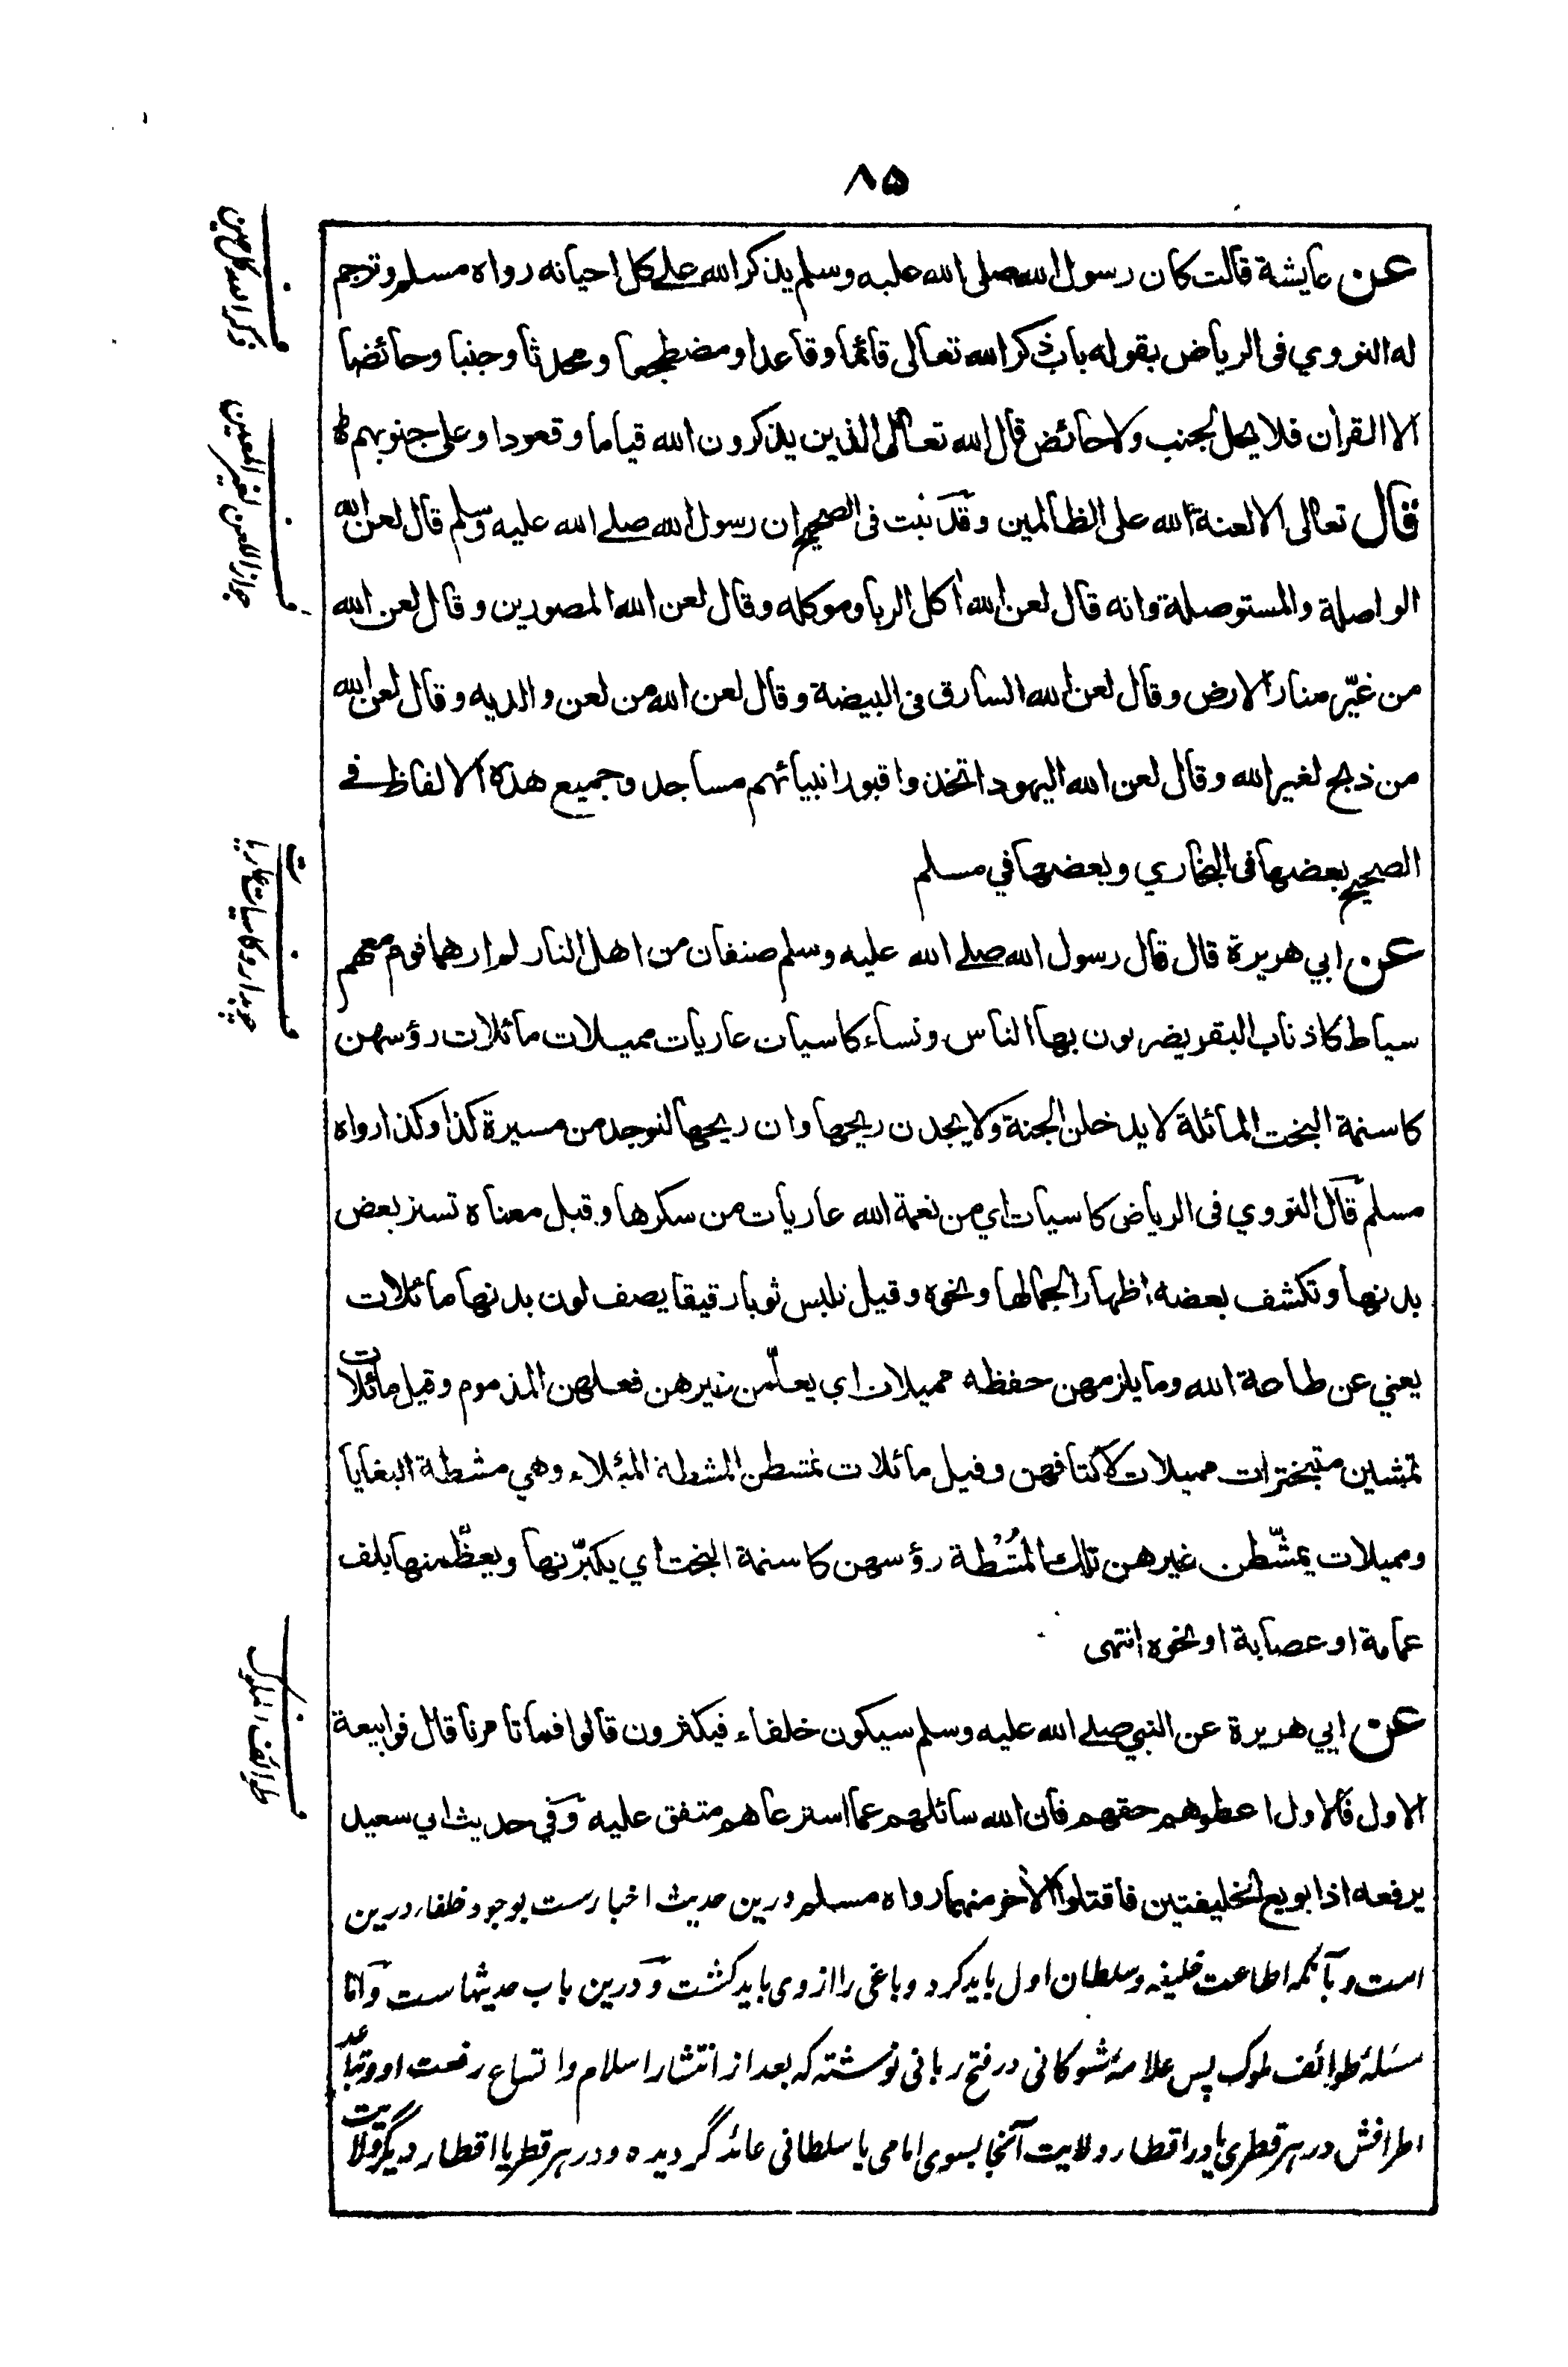 ۸۵
عن عايشة قالت كان رسول الله صلى الله عليه وسلم يذكر الله على كل احيانه رواه مسلم وترجم
له النووي فى الرياض بقوله باب ذكر الله تعالى قائما وقاعدا ومضطجعا ومحدثا وجنبا وحائضا
الا القرأن فلا يحل لجنب ولا حائض قال الله تعالى الذين يذكرون الله قياما وقعودا وعلى جنوبهم
قال تعالى الا لعنة الله على الظالمين وقد ثبت فى الصحيح ان رسول الله صلے الله عليه وسلم قال لعن الله
الواصلة والمستوصلة وانه قال لعن الله أكل الربا وموكله وقال لعن الله المصورين وقال لعن الله
من غيّر منار الارض وقال لعن الله السارق فى البيضة وقال لعن الله من لعن والديه وقال لعن الله
من ذبح لغير الله وقال لعن الله اليهود اتخذوا قبور انبيائهم مساجد وجميع هذه الالفاظ فے
الصحيح بعضها فى البخاري وبعضها في مسلم
عن ابي هريرة قال قال رسول الله صلے الله عليه وسلم صنفان من اهل النار لم ارهما قوم معهم
سياط كاذناب البقر يضربون بها الناس ونساء كاسيات عاريات مميلات مائلات رؤسهن
كاسنمة البخت المائلة لا يدخلن الجنة ولا يجدن ريحها وان ريحها لتوجد من مسيرة كذا وكذا رواه
مسلم قال النووي فى الرياض كاسيات اي من نعمة الله عاريات من سكرها وقيل معناه تستر بعض
بدنها وتكشف بعضه اظهارا لجمالها ونحوه وقيل تلبس ثوبا رقيقا يصف لون بدنها مائلات
يعني عن طاعة الله وما يلزمهن حفظه مميلات اي يعلّمن غيرهن فعلهن المذموم وقيل مائلات
تمشين متبخترات مميلات لاكتافهن وقيل مائلات تمتشطن المشطة الميلاء وهي مشطة البغايا
ومميلات يمشّطن غيرهن تلك المشطة رؤسهن كاسنمة البخت اي يكبّرنها ويعظّمنها بلف
عمامة او عصابة او نحوه انتهى
عن ابي هريرة عن النبي صلے الله عليه وسلم سيكون خلفاء فيكثرون قالوا فما تامرنا قال فوا بيعة
الاول فالاول اعطوهم حقهم فان الله سائلهم عما استرعاهم متفق عليه وفي حديث ابي سعيد
يرفعه اذا بويع لخليفتين فاقتلوا الأخر منهما رواه مسلم درين حديث اخبارست بوجود خلفاء درين
است وبآنكه اطاعت خليفه وسلطان اول بايد كرد وباغى را ازوى بايد كشت ودرين باب حديثهاست واما
مسئلۀ طوائف ملوك پس علامۀ شوكانى در فتح ربانى نوشته كه بعد از انتشار اسلام واتساع رقعت او وتباعد
اطرافش در هر قطرى يا در اقطار ولايت آنجا بسوى امامى يا سلطانى عائد گرديده ودر هر قطر يا اقطار ديگر ولايت
ذكر الله كل حين
جواز اللعن لغير المعين
چوبدار وكاسيات عاريات
طوائف الملوك